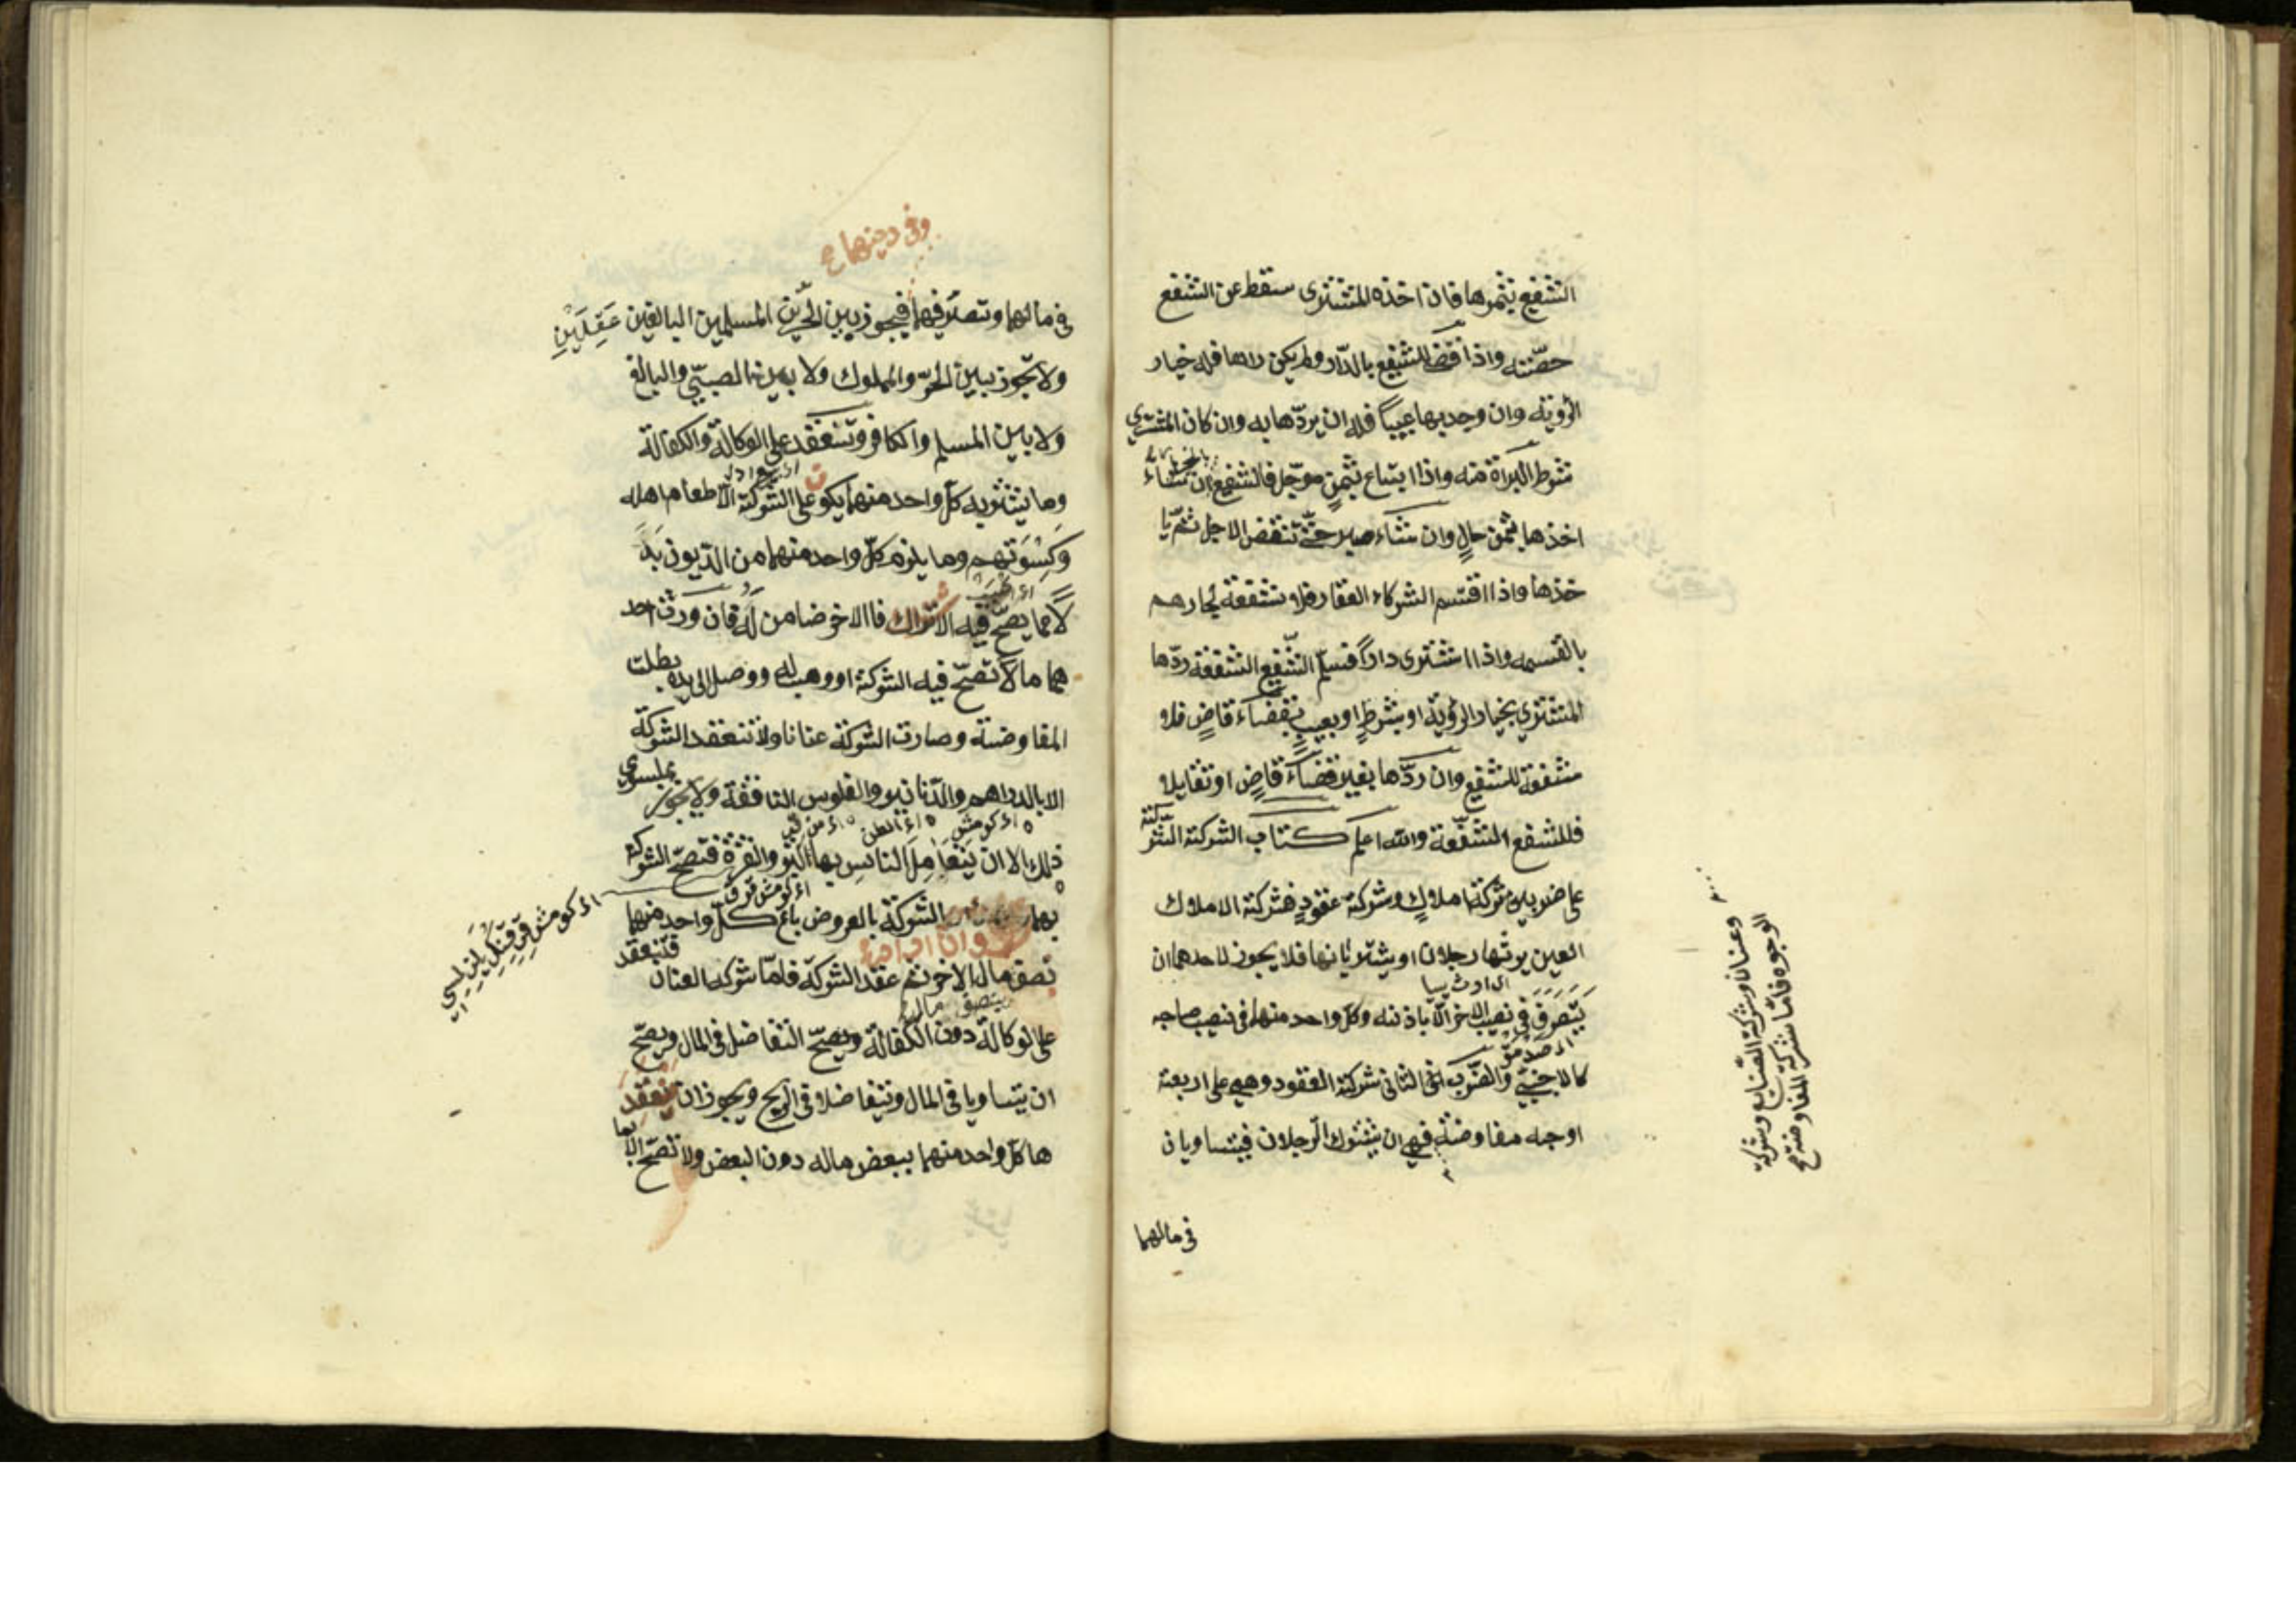 الشفيع بثمرها فان اخذه المشترى سقط عن الشفع
حصّته واذا قضى للشفيع بالدّار ولم يكن راها فله خيار
الرؤية وان وجد بها عيباً فله ان يردّها به وان كان المشترى
شرط البراة منه واذا ابتاع بثمنٍ موجّل فالشفيع ان شاء
بالخيار
اخذها بثمن حالٍ وان شاء صبر حتّى تنقض الاجل ثمّ يا
خذها واذا اقتسم الشركاء العقار فلا شفعة لجارهم
بالقسمه واذا اشترى داراً فسلّم الشّفيع الشفعة ردّها
المشترى بخيار الرؤية او بشرطٍ او بعيبٍ بقضاءٍ قاضٍ فلا
شفعة للشفيع وان ردّها بغير قضاءٍ قاضٍ او تقايلا
فللشفع الشفعة والله اعلم كتاب الشركة الشّركة
على ضربين شركة املاكٍ وشركة عقودٍ فشركة الاملاك
العين يرثها رجلان او يشتريانها فلا يجوز لاحدهما ان
يَتَصَرَفَ فى نصيب الاخر الّا باذنه وكلّ واحد منهما فى نصيب صاحبه
كالاجنبىّ والضّرب الثانى شركة العقود وهى على اربعة
اوجه مفاوضة فهى ان يشترك الرّجلان فيتساويان
فى مالهما
وعنان وشركة الصّنايع وشركة
الوجوه فامّا شركة المفاوضة صح
وفى دينهما صح
فى مالهما وتصرّفهما فيجوز بين الحرّين المسلمين البالغين عَقِلَيْنِ
ولا يجوز بين الحرّ والمملوك ولا بين الصبىّ والبالغ
ولا بين المسلم والكافر وتنعقد على الوكالة والكفالة
وما يشتريه كلّ واحد منهما يكون على الشّركة الّا طعام اهله
وَكِسْوَتهم وما يلزم كلّ واحد منهما من الدّيون بَدَ
لًا مما يصحّ فيه الاشتراك فاالاخر ضامن لَهُ فان ورث احد
هما مالا تصحّ فيه الشركة او وهب له ووصل الى يده بطلت
المفاوضة وصارت الشركة عنانا ولا تنعقد الشّركة
الا بالدراهم والدّنانير والفلوس النافقة ولا يجوز بما سوى
ذلك الا ان يَتَعَامِلَ الناس بها كالتبر والنقرة فتصحّ الشّركة
بهما وان اراد الشركة بالعروض باع كلّ واحد منهما
نصف ماله بنصف مال الاخر ثم عقد الشركة فامّا شركة العنان فتنعقد
على الوكالة دون الكفالة ويصحّ التفاضل فى المال ويصحّ
ان يتساويا فى المال وتتفاضلا فى الربح ويجوز ان يعقد
ها كلّ واحد منهما ببعض ماله دون البعض ولا تصحّ الّا بما